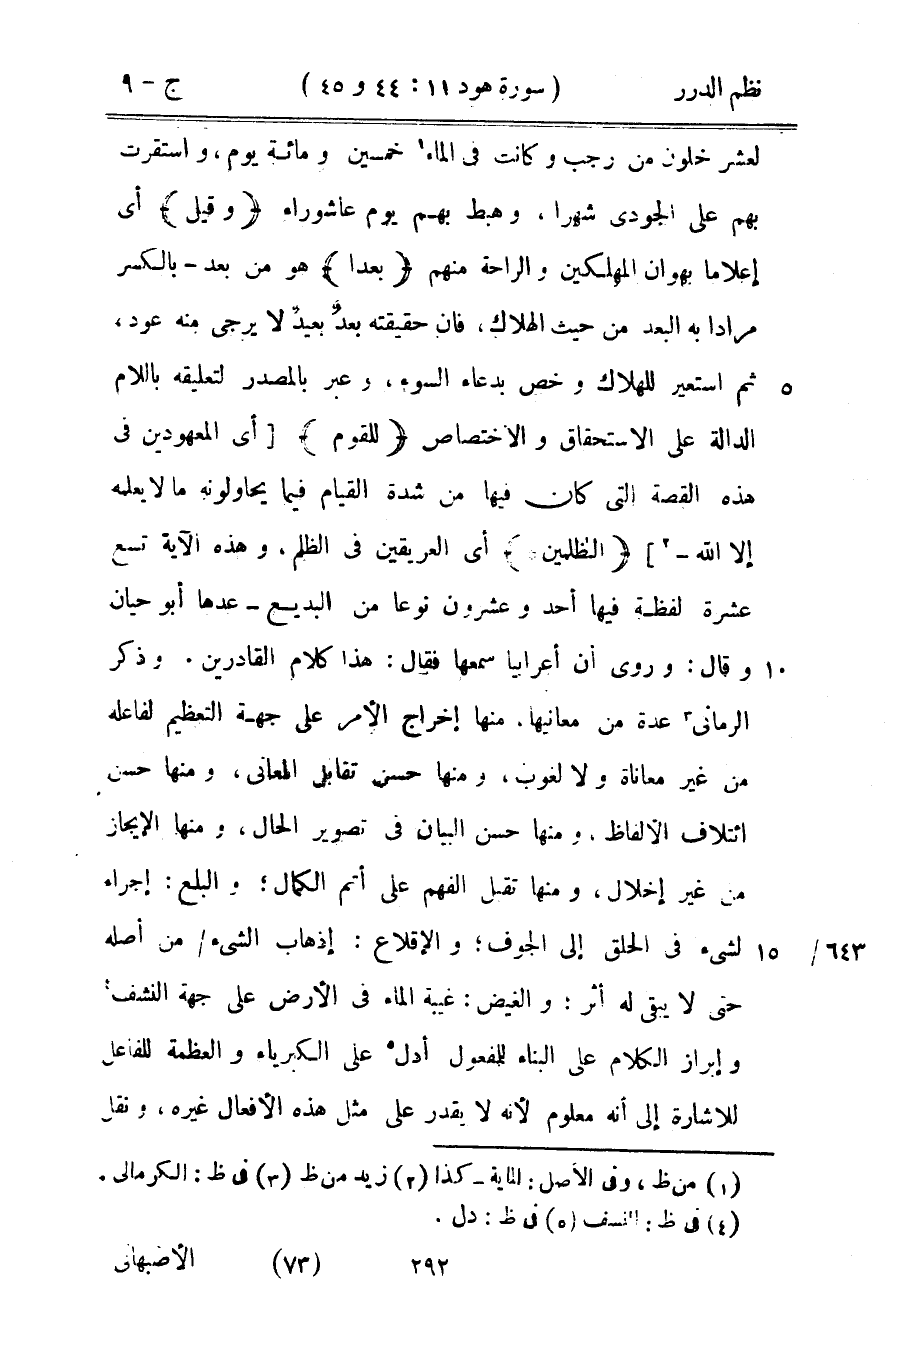 نظم الدرر ( سورة هود ١١ : ٤٤ و ٤٥ ) ج - ٩
لعشر خلون من رجب و كانت فى الماء١ خمسين و مائة يوم ، و استقرت
بهم على الجودى شهرا ، و هبط بهم يوم عاشوراء ﴿ و قيل ﴾ أى
إعلاما بهوان المهلكين و الراحة منهم ﴿ بعدا ﴾ هو من بعد - بالكسر
مرادا به البعد من حيث الهلاك ، فان حقيقته بعدٌ بعيدٌ لا يرجى منه عود ،
٥ ثم استعير للهلاك و خص بدعاء السوء ، و عبر بالمصدر لتعليقه باللام
الدالة على الاستحقاق و الاختصاص ﴿ للقوم ﴾ [ أى المعهودين فى
هذه القصة التى كان فيها من شدة القيام فيما يحاولونه ما لا يعلمه
إلا الله -٢ ] ﴿ الظلمين ﴾ أى العريقين فى الظلم ، و هذه الآية تسع
عشرة لفظة فيها أحد و عشرون نوعا من البديع - عدها أبو حيان
١٠ و قال : و روى أن أعرابيا سمعها فقال : هذا كلام القادرين . و ذكر
الرمانى٣ عدة من معانيها . منها إخراج الأمر على جهة التعظيم لفاعله
من غير معاناة و لا لغوب ، و منها حسن تقابل المعانى ، و منها حسن
ائتلاف الألفاظ . و منها حسن البيان فى تصوير الحال ، و منها الإيجاز
من غير إخلال ، و منها تقبل الفهم على أتم الكمال ؛ و البلع : إجراء
٦٤٣/ ١٥ لشىء فى الحلق إلى الجوف ؛ و الإقلاع : إذهاب الشىء / من أصله
حتى لا يبقى له أثر ؛ و الغيض : غيبة الماء فى الأرض على جهة النشف٤
و إبراز الكلام على البناء للمفعول أدل٥ على الكبرياء و العظمة للفاعل
للاشارة إلى أنه معلوم لأنه لا يقدر على مثل هذه الأفعال غيره ، و نقل
(١) من ظ ، و فى الأصل : الماية - كذا (٢) زيد من ظ (٣) فى ظ : الكرمالى .
(٤) فى ظ : النسف (٥) فى ظ : دل .
٢٩٢ (٧٣) الأصبهانى